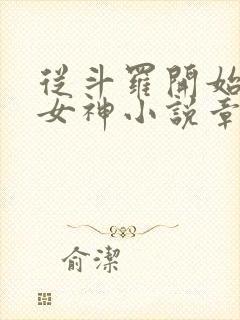 從斗羅開始
女神小說章
俞潔